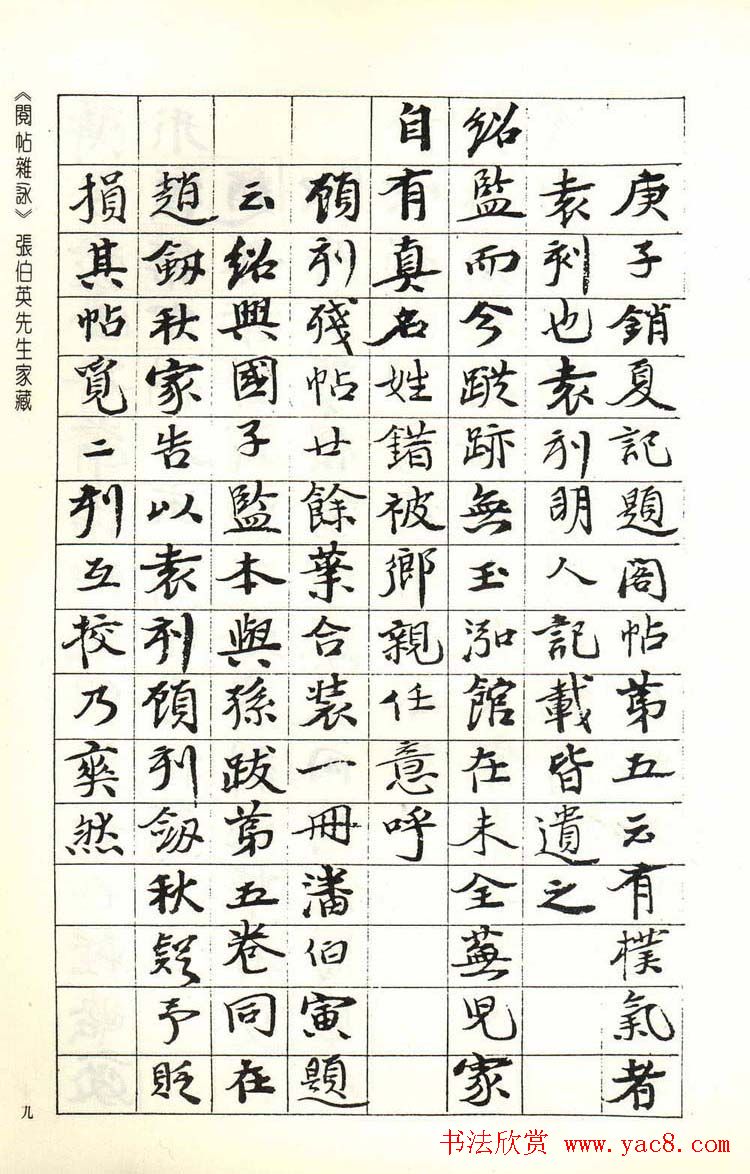 庚子銷夏記題閣帖第五云有樸氣者
袁刻也袁刻明人記載皆遺之
紹監而今蹤跡無玉泓館在未全蕪兒家
自有真名姓錯被鄉親任意呼
顧刻殘帖廿餘葉合裝一冊潘伯寅題
云紹興國子監本與孫跋第五卷同在
趙劒秋家告以袁刻顧刻劒秋疑予貶
損其帖覓二刻互校乃爽然
《閱帖雜詠》張伯英先生家藏
九
书法欣赏 www.yac8.com